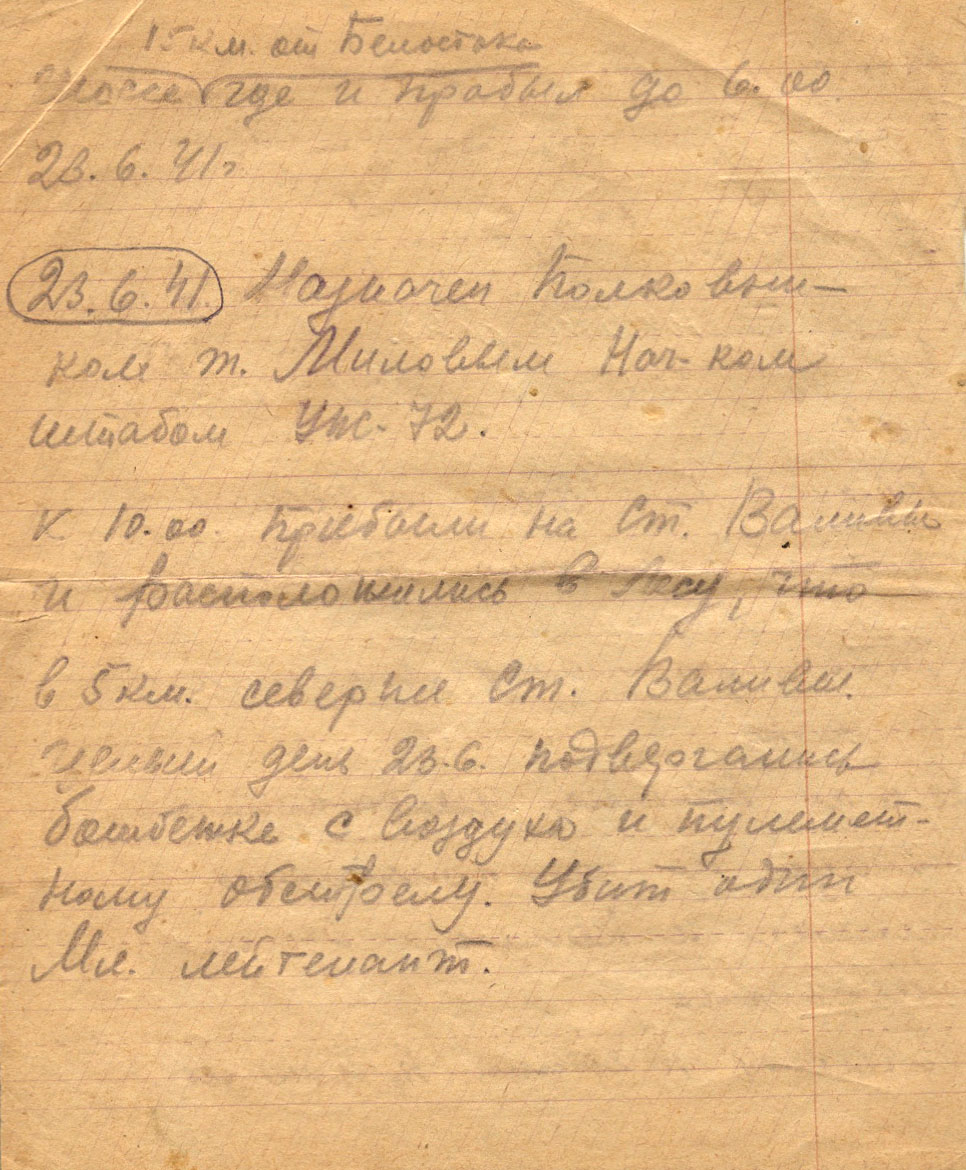 15 км. от Белостока
шоссе где и пробыл до 6.00
23.6.41г
23.6.41. Назначен Полковни-
ком т. Миловым Нач-ком
штабом УНС-72.
К 10.00 прибыли на Ст. Валилы
и расположились в лесу, что
в 5 км. северн. Ст. Валилы.
целый день 23.6. подвергались
бомбежке с воздуха и пулемет-
ному обстрелу. Убит один
Мл. лейтенант.